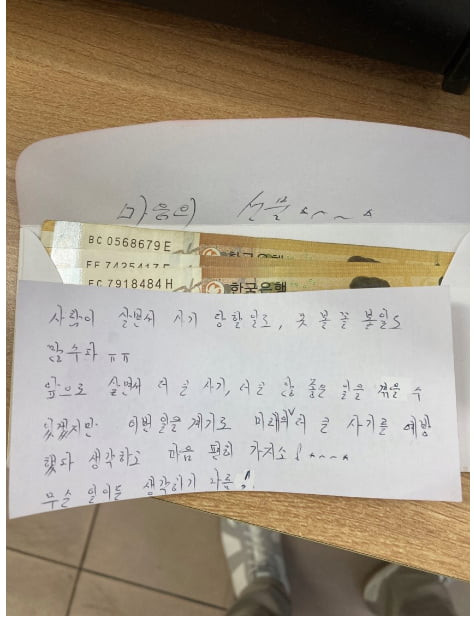 마음의 선물^~~^
BC 0568679 E
FC 7918484 H
한국은행
사람이 살면서 사기 당할일도, 못 볼꼴 볼일도
많수다 ㅠㅠ
앞으로 살면서 더 큰 사기, 더 큰 안 좋은 일을 겪을 수
있겠지만 이번 일을 계기로 미래의 더 큰 사기를 예방
했다 생각하고 마음 편히 가지소!^~~^
무슨 일이든 생각하기 나름!